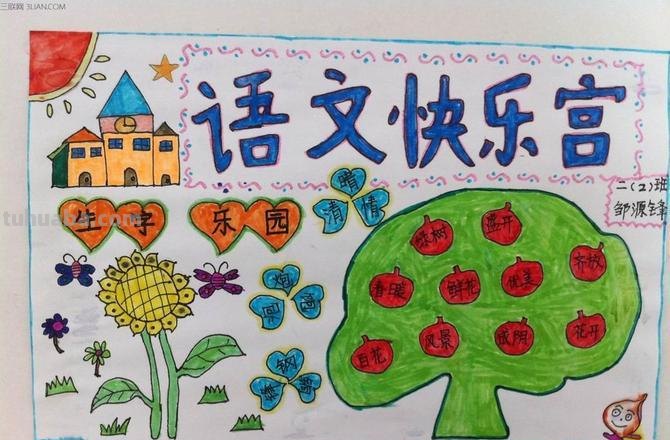 三联网 3LIAN.COM
语文快乐宫
二(2)班
邹源锋
生字 乐园
tuhuabao.com
晴
清 情
绿树 盛开
齐放
春暖 鲜花 优美
百花 风景 成阴 花开
钢